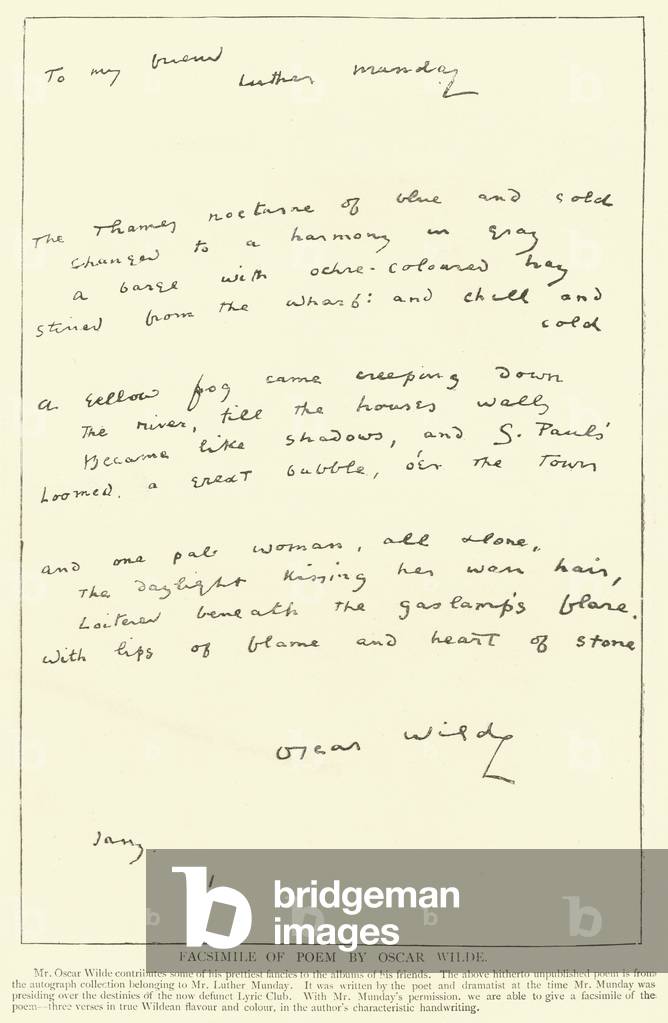 To my friend
Luther Munday
The Thames nocturne of blue and gold
Changed to a harmony in gray
a barge with ochre-coloured hay
Stirred from the wharf: and chill and
cold
a yellow fog came creeping down
The river, till the houses walls
Became like shadows, and S. Pauls'
Loomed, a great bubble, o'er the Town
and one pale woman, all alone,
The daylight kissing her wan hair,
Loitered beneath the gaslamp's flare.
With lips of flame and heart of stone
Oscar Wilde
b
bridgeman
images
FACSIMILE OF POEM BY OSCAR WILDE.
Mr. Oscar Wilde contributes some of his prettiest fancies to the albums of his friends. The above hitherto unpublished poem is from
the autograph collection belonging to Mr. Luther Munday. It was written by the poet and dramatist at the time Mr. Munday was
presiding over the destinies of the now defunct Lyric Club. With Mr. Munday's permission, we are able to give a facsimile of the
poem—three verses in true Wildean flavour and colour, in the author's characteristic handwriting.